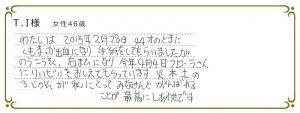 T.I様 女性46歳
わたしは 2015年2月28日 44才のときに
くもまっか出血になり 手術をしてもらいましたが
のうこうそく、右まひになり 今年4月4日フローラさん
にりハビリをおしえてもらっています 火 木 土の
3じかん が 私にとって みなさんと がんばれる
ことが 最高にしあわせです